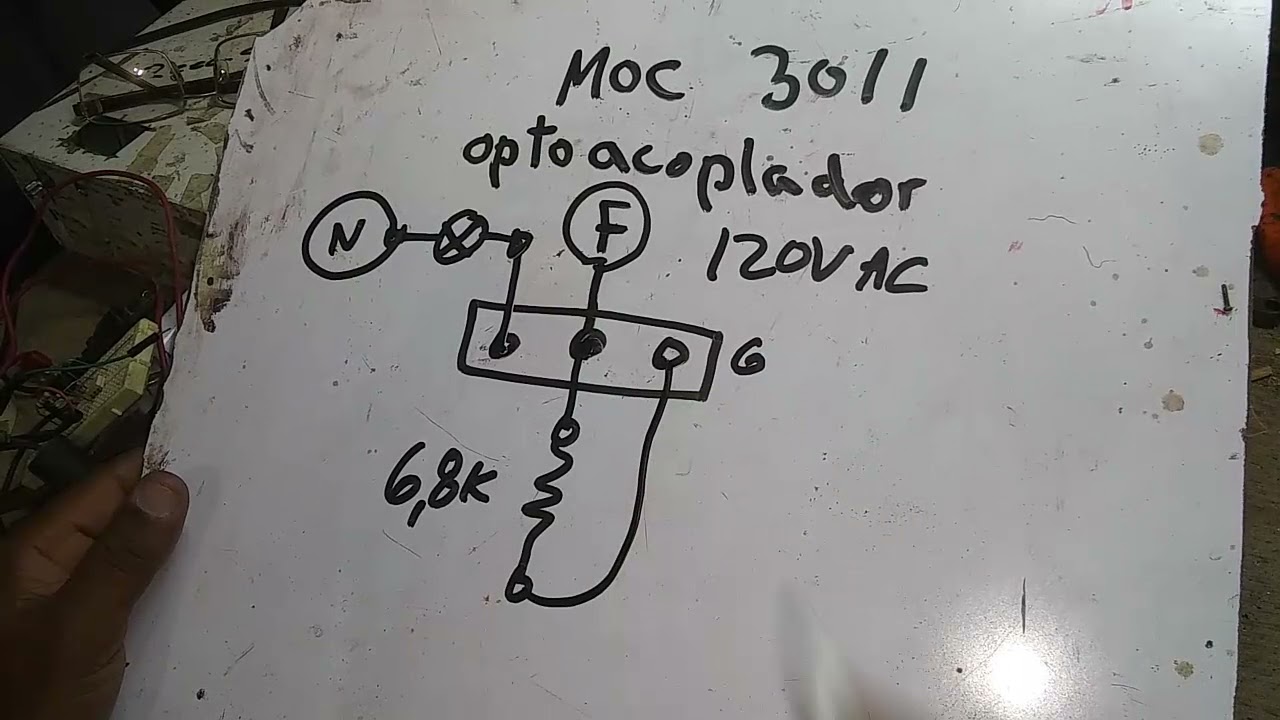 MOC 3011
optoacoplador
N F
120V AC
G
6,8K